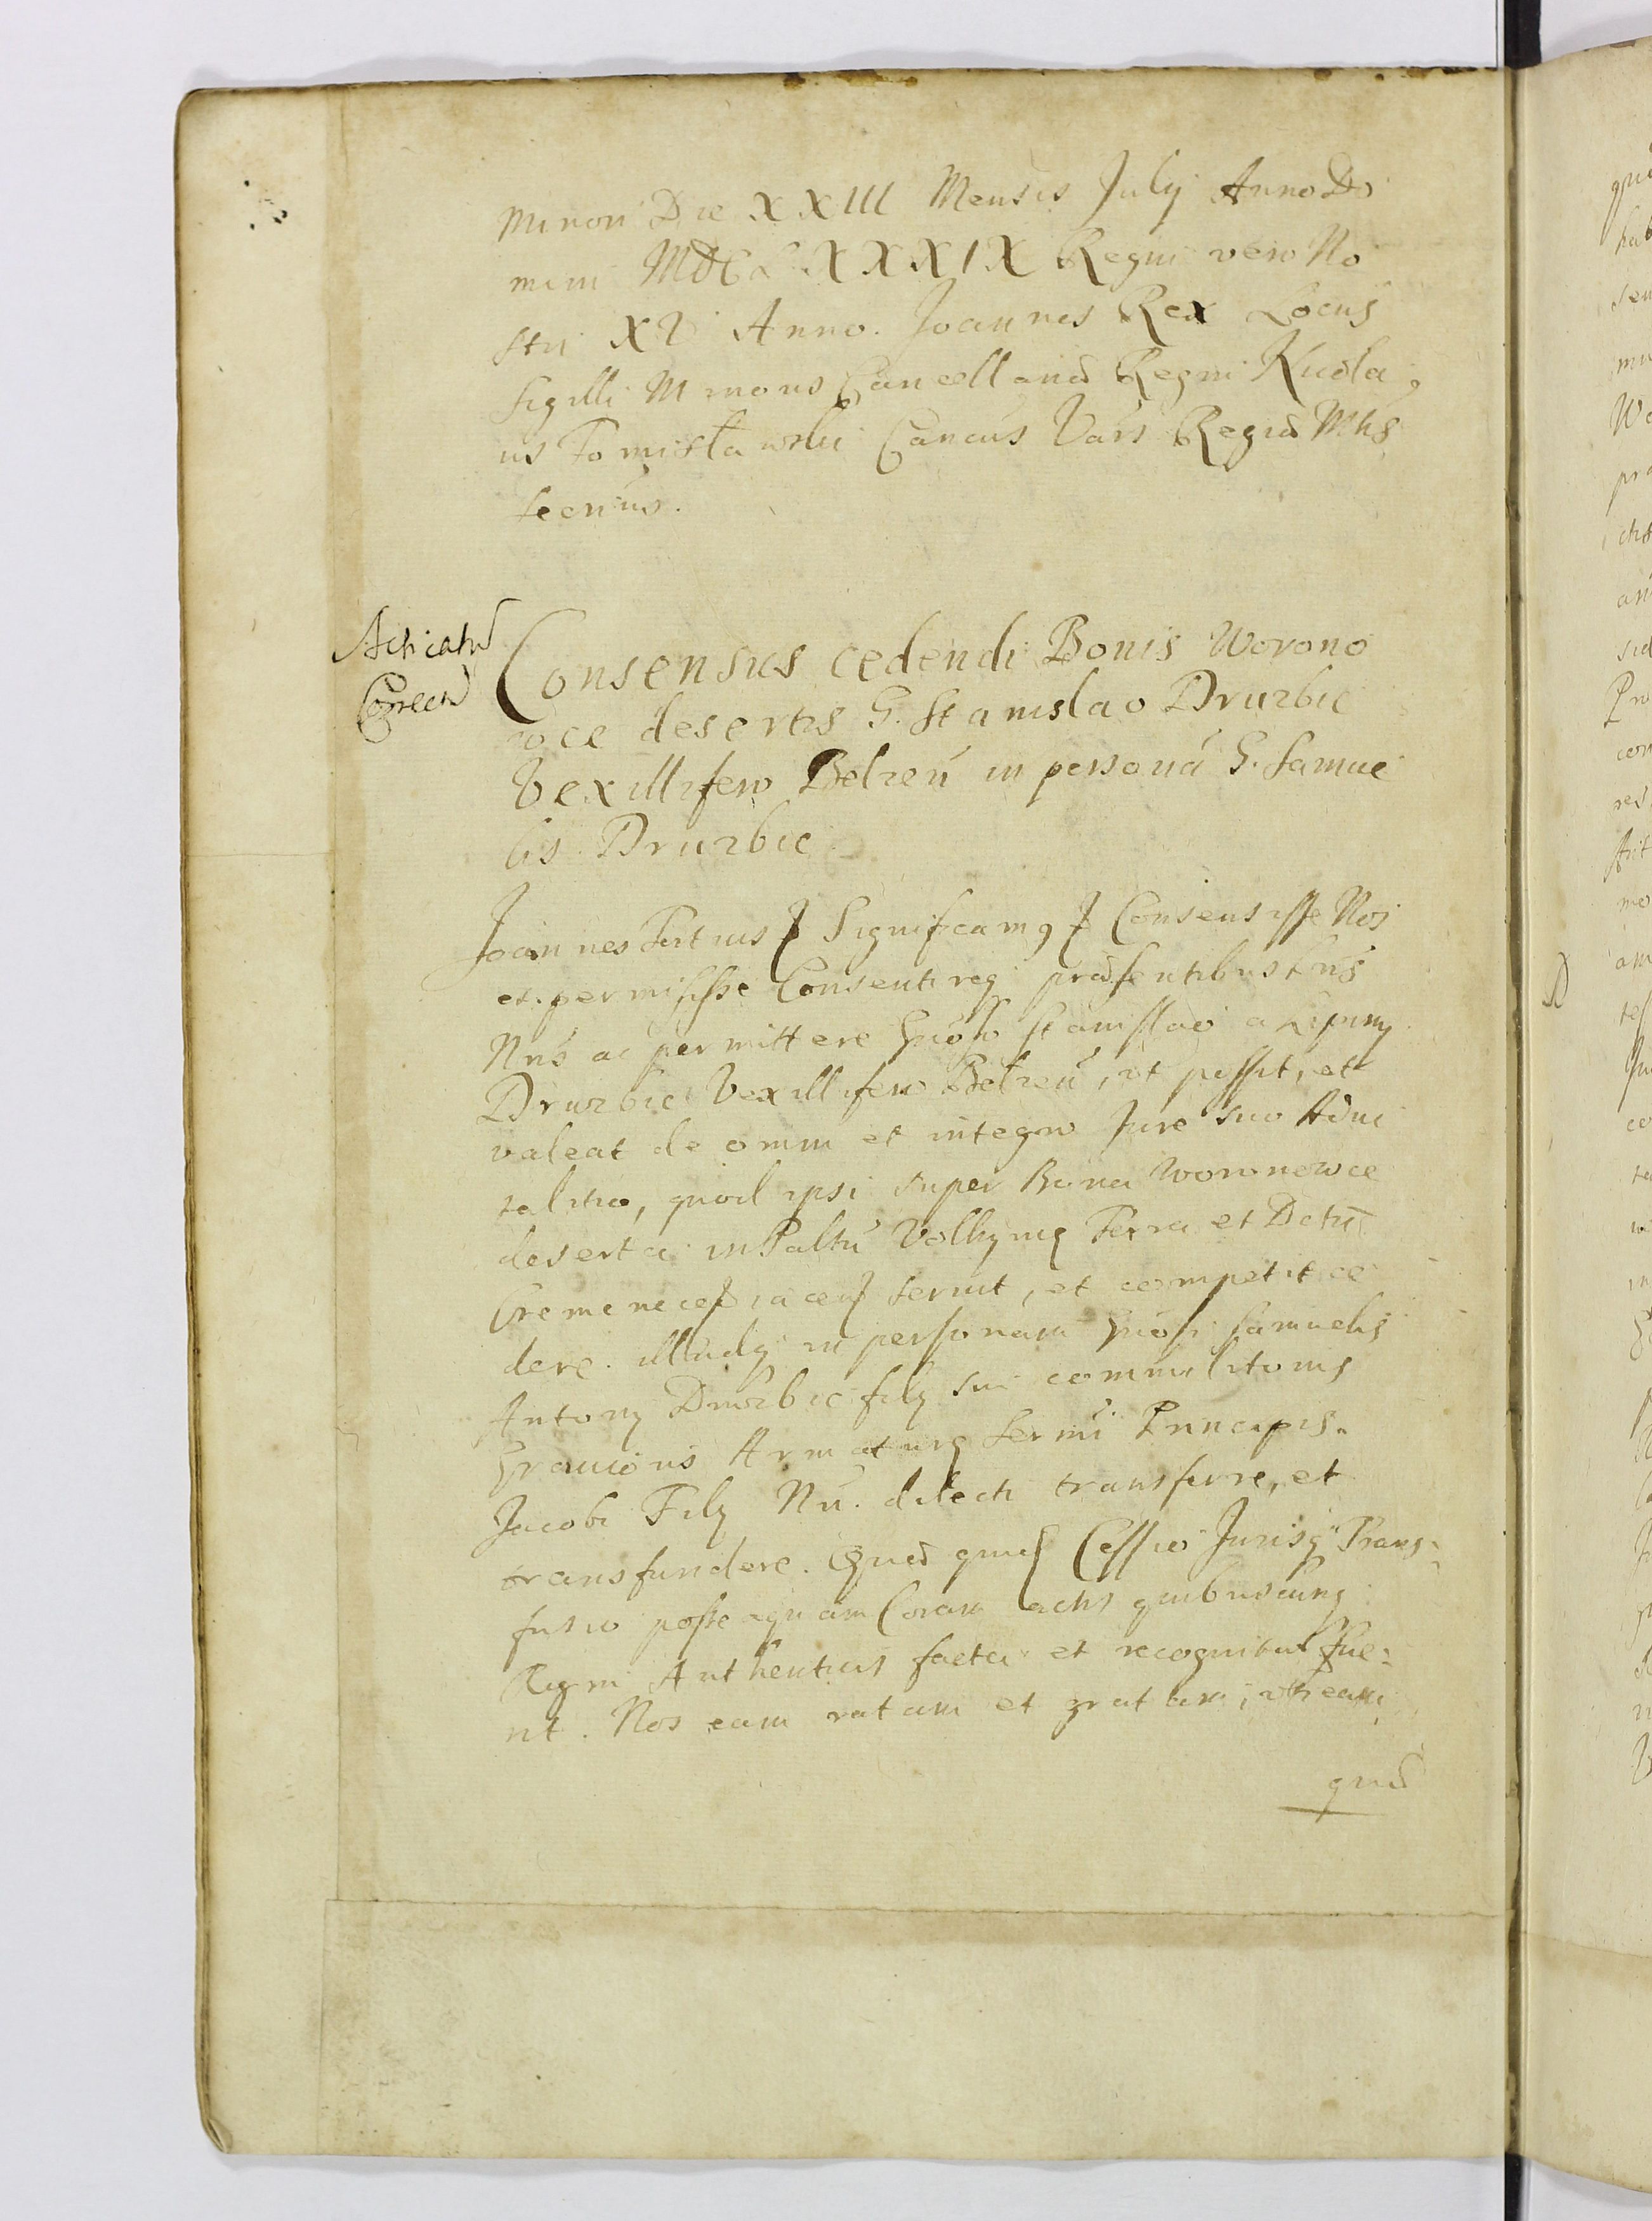 minori Die XXIII Mensis July Anno Do
mini MDCLXXXIX Regni vero No
stri XV Anno. Joannes Rex Locus
Sigilli Minoris Cancellariæ Regni Nicola
us Tomisławski Cancus Vars Regiæ Mtis
Secrius.
Acticatū
Correctū
Consensus cedendi Bonis Worono
wce desertis G. Stanislao Druzbic
Vexillifero Belzeń in personā G. Samue
lis Druzbic
Joannes Tertius Significamꝯ Consensisse Nos
et permisisse Consentireqꝫ præsentibus Lris
Nris ac permittere Gnoso Stanislao a Lipiny
Druzbic Vexillifero Belzeń, ut possit, et
valeat de omni et integro Jure suo Advi
talitio, quod ipsi super Bona Woronowce
deserta in Paltu Volhyniæ Terra et Dctu
Cremenecen jacen servit, et competit ce
dere. illudqꝫ in personam Gnosi Samuelis
Antony Druzbic filÿ sui commilitonis
Gravioris Armaturæ Sermi Principis
Jacobi Filÿ Nri. dilecti transferre, et
transfundere. Quæ quid Cessio Jurisqꝫ Trans-
fusio posteaquam Coram actis quibuscunqꝫ
Regni Authenticis facta et recognita fue-
rit. Nos eam ratam et gratam, uti eam
quæ